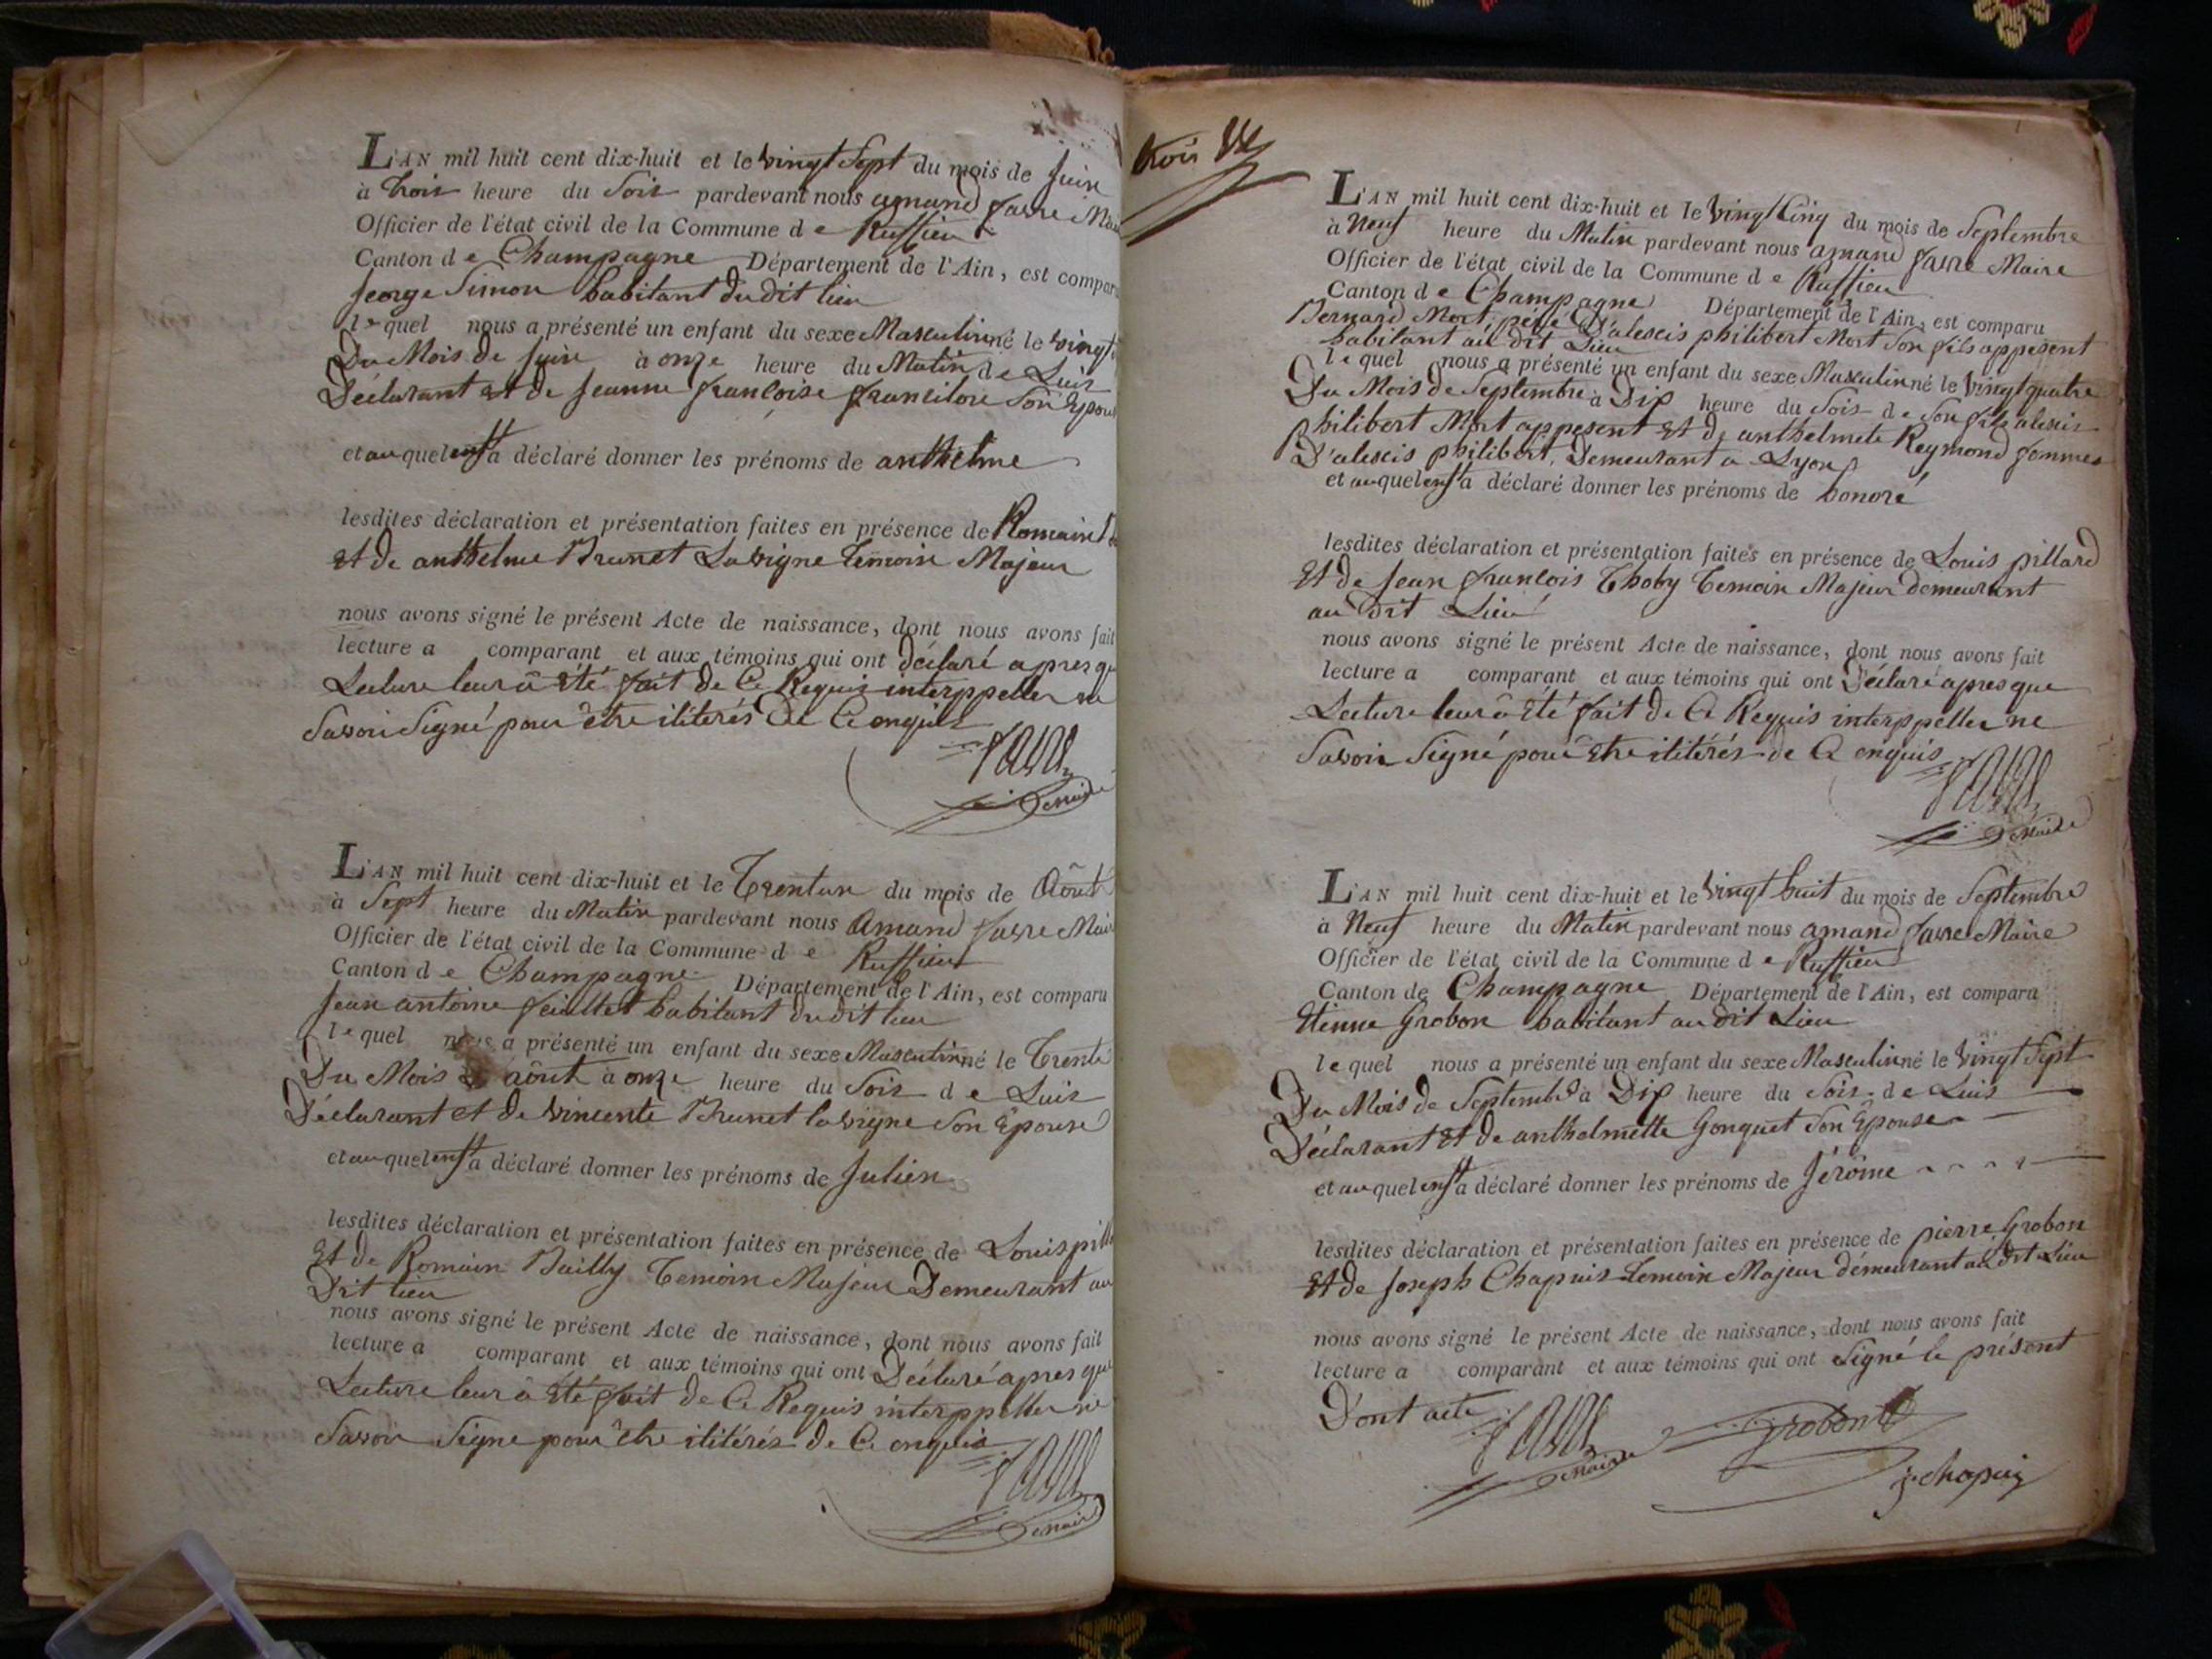 L'AN mil huit cent dix-huit et le vingt Sept du mois de Juin
à trois heure du Soir pardevant nous amand favre
Officier de l'état civil de la Commune d e Ruffieu
Canton d e Champagne Département de l'Ain, est compar
George Simon habitant du dit lieu
le quel nous a présenté un enfant du sexe Masculin né le vingt
Du Mois de Juin à onze heure du Matin d e Luis
Déclarant et de Jeanne françoise Son Epou
et au quel enft a déclaré donner les prénoms de anthelme
lesdites déclaration et présentation faites en présence de Romain
et de anthelme Brunet Lavigne temoin Majeur
nous avons signé le présent Acte de naissance, dont nous avons fait
lecture a comparant et aux témoins qui ont déclaré apres qu
Lecture leur â été fait de Ce Requis interppeller ne
Savoir Signé pour être ilitérés de Ce enquis
favre
maire
L'AN mil huit cent dix-huit et le trentun du mois de Aôut
à Sept heure du Matin pardevant nous Amand favre Mair
Officier de l'état civil de la Commune d e Ruffieu
Canton d e Champagne Département de l'Ain, est comparu
Jean antoine habitant du dit lieu
le quel nous a présenté un enfant du sexe Masculin né le trente
Du Mois de aôut à onze heure du Soir d e Luis
Déclarant et de vincente Brunet lavigne Son Epouse
et au quel enft a déclaré donner les prénoms de Julien
lesdites déclaration et présentation faites en présence de Louis pill
Et de Romain Bailly temoin Majeur Demeurant au
Dit lieu
nous avons signé le présent Acte de naissance, dont nous avons fait
lecture a comparant et aux témoins qui ont Déclaré apres que
Lecture leur â été fait de Ce Requis interppeller ne
Savoir Signe pour être ilitérés de Ce enquis
favre
maire
trois
L'AN mil huit cent dix-huit et le vingt Cinq du mois de Septembre
à Neuf heure du Matin pardevant nous amand favre Maire
Officier de l'état civil de la Commune d e Ruffieu
Canton d e Champagne Département de l'Ain, est comparu
Bernard Mort père D'alexis philibert Mort Son fils appesent
habitant au dit Lieu
le quel nous a présenté un enfant du sexe Masculin né le vingt quatre
Du Mois de Septembre à Dix heure du Soir d e Son fils alexis
philibert Mort appesent et de anthelmete Reymond femme
D'alexis philibert, Demeurant a Lyon
et au quel enft a déclaré donner les prénoms de honoré
lesdites déclaration et présentation faites en présence de Louis pillard
Et de Jean françois Thoby temoin Majeur demeurant
au dit Lieu
nous avons signé le présent Acte de naissance, dont nous avons fait
lecture a comparant et aux témoins qui ont Déclaré apres que
Lecture leur â été fait de Ce Requis interppeller ne
Savoir Signé pour Etre ilitérés de Ce enquis
favre
maire
L'AN mil huit cent dix-huit et le vingt huit du mois de Septembre
à Neuf heure du Matin pardevant nous amand favre Maire
Officier de l'état civil de la Commune d e Ruffieu
Canton de Champagne Département de l'Ain, est compara
Etienne Grobon habitant au dit Lieu
le quel nous a présenté un enfant du sexe Masculin né le vingt Sept
Du Mois de Septembre à Dix heure du Soir d e Luis
Déclarant Et de anthelmette Gonguet Son Epouse
et au quel enft a déclaré donner les prénoms de Jérôme
lesdites déclaration et présentation faites en présence de pierre Grobon
Et de Joseph Chapuis temoin Majeur démeurant au dit Lieu
nous avons signé le présent Acte de naissance, dont nous avons fait
lecture a comparant et aux témoins qui ont Signé le présent
D'ont acte
favre
maire
Grobon
j. chapuis